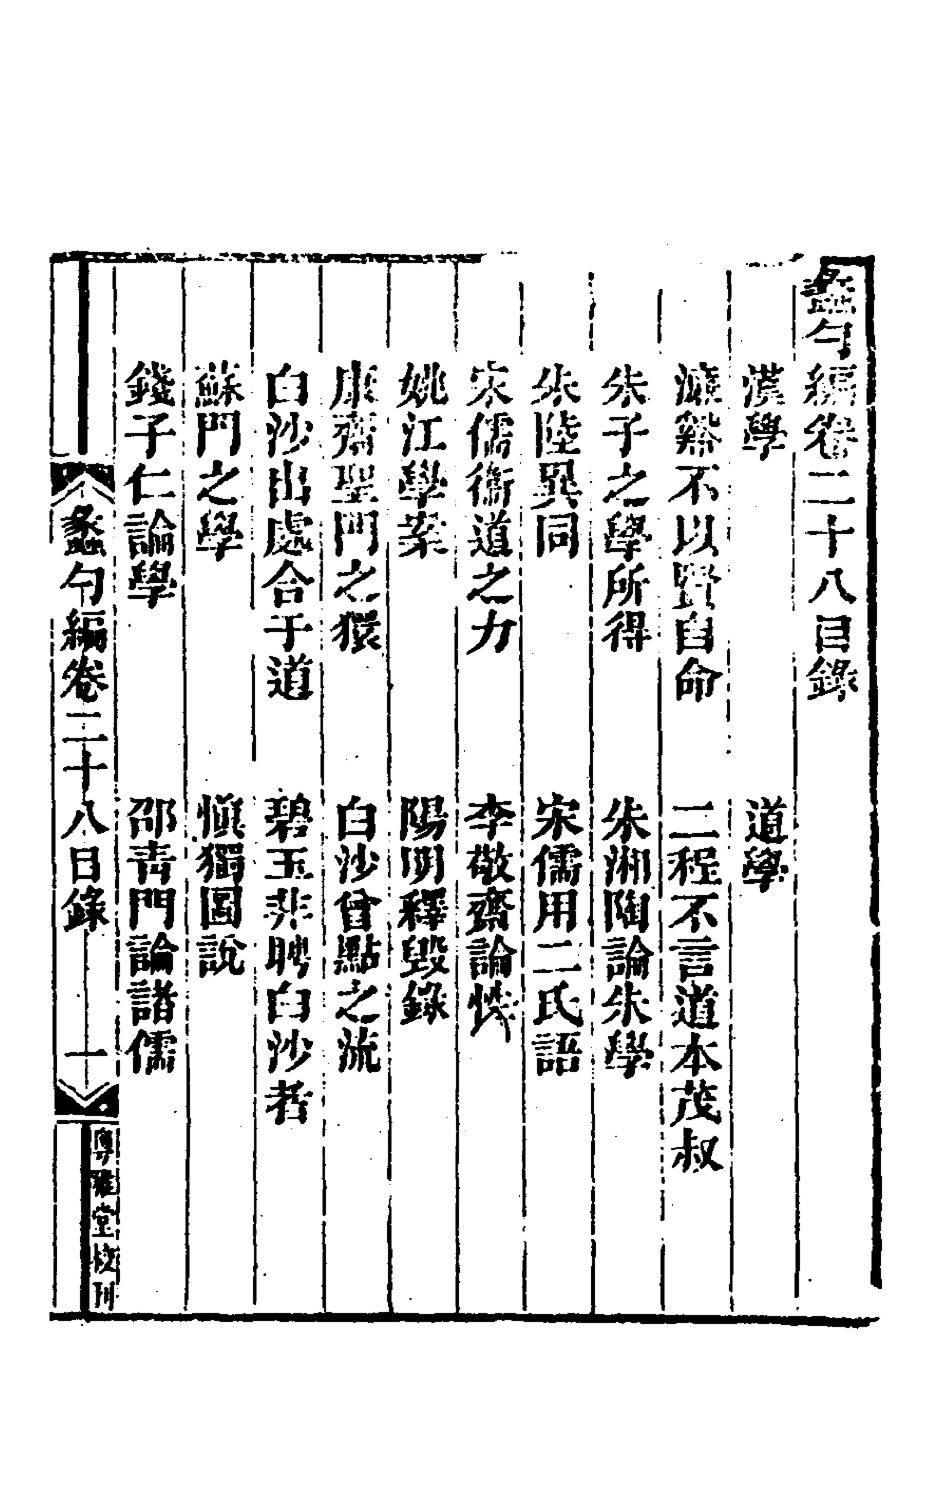 蠡勺編卷二十八目錄
漢學　道學
濂谿不以賢自命　二程不言道本茂叔
朱子之學所得　朱湘陶論朱學
朱陸異同　宋儒用二氏語
宋儒衛道之力　李敬齋論性
姚江學案　陽明釋毀錄
康齋聖門之獧　白沙曾點之流
白沙出處合于道　碧玉非聘白沙者
蘇門之學　慎獨圖說
錢子仁論學　邵青門論諸儒
蠡勺編卷二十八目錄　一　粵雅堂校刊